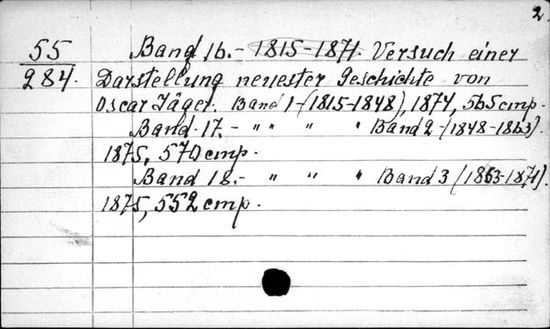 2
55 Band 16.- 1815-1871. Versuch einer
284. Darstellung neuester Geschichte von
Oscar Jäger. Band 1-(1815-1848), 1874, 565 стр.
Band 17.- " " " " Band 2-(1848-1863).
1875, 570 стр.
Band 18.- " " " Band 3 (1863-1871).
1875, 552 стр.